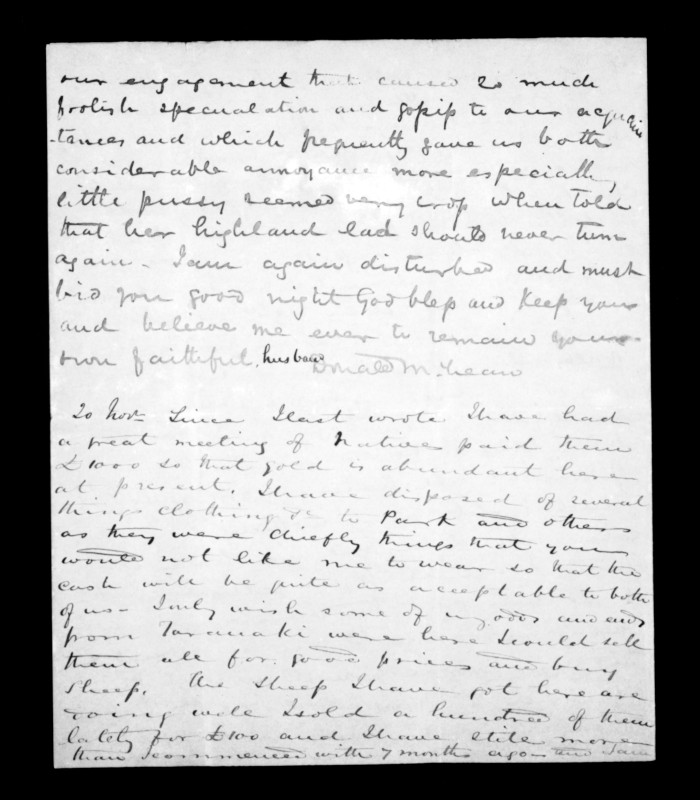 our engagement that caused so much
foolish specualation and gossip to our acquain
-tances and which frequently gave us both
considerable annoyance more especially,
little pussy seemed very cross when told
that her highland lad should never turn
again. I am again disturbed and must
bid you good night God bless and Keep you
and believe me ever to remain your
own faithful, husband Donald McLean
20 Nov. Since I last wrote I have had
a great meeting of Natives paid them
£1000 so that gold is abundant here
at present. I have disposed of several
things clothing &c to Park and others
as they were chiefly things that you
would not like me to wear so that the
cash will be quite as acceptable to both
of us - I only wish some of my odds and ends
from Taranaki were here I could sell
them all for good prices and buy
sheep. The sheep I have got here are
doing well I sold a hundred of them
lately for £100 and I have still more
than I commenced with 7 months ago and I am